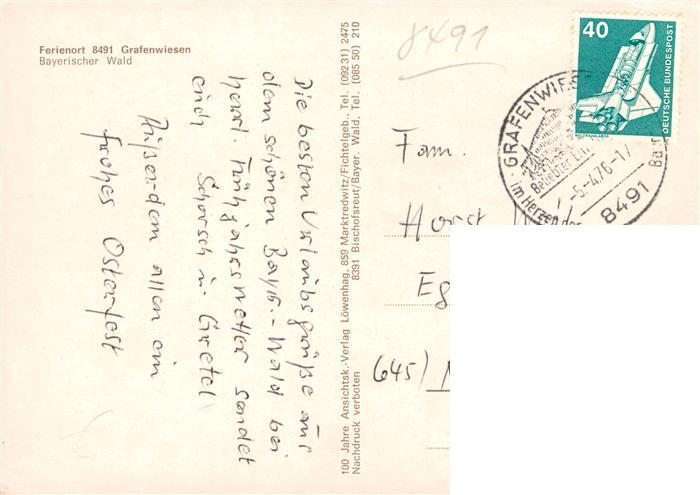 Ferienort 8491 Grafenwiesen
Bayerischer Wald
Die besten Urlaubsgrüße aus
dem schönen Bayr.-Wald bei
herrl. Frühjahrswetter sendet
euch Schorsch u. Gretel
Außerdem allen ein
frohes Osterfest
100 Jahre Ansichtsk.-Verlag Löwenhag, 859 Marktredwitz/Fichtelgeb., Tel. (09231) 2475
8391 Bischofsreut/Bayer. Wald, Tel. (085 50) 210
Nachdruck verboten
8491
40
DEUTSCHE BUNDESPOST
GRAFENWIES
Beliebter
Im Herzen des
-5.-4.76-17
8491
Fam.
Horst
Eg
645)